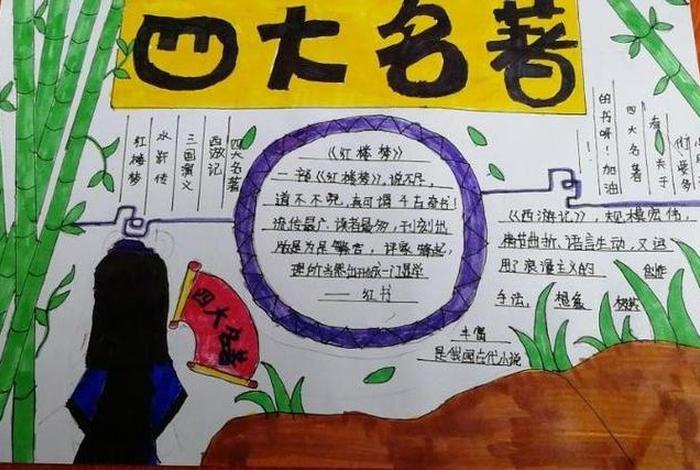 四大名著
四大名著
西游记
三国演义
水浒传
红楼梦
《红楼梦》
一部《红楼梦》，说不尽，
道不不晓，真可谓千古奇书！
流传最广，读者最多，刊刻出
版最为，评家蜂起，
理所当然一门显学
——红书
有关于
四大名著
的书呀！加油
《西游记》，规模宏伟，
情节曲折、语言生动，又运
用了浪漫主义的 创作
手法，想象 极其
丰富
是我国古代小说
四大名著